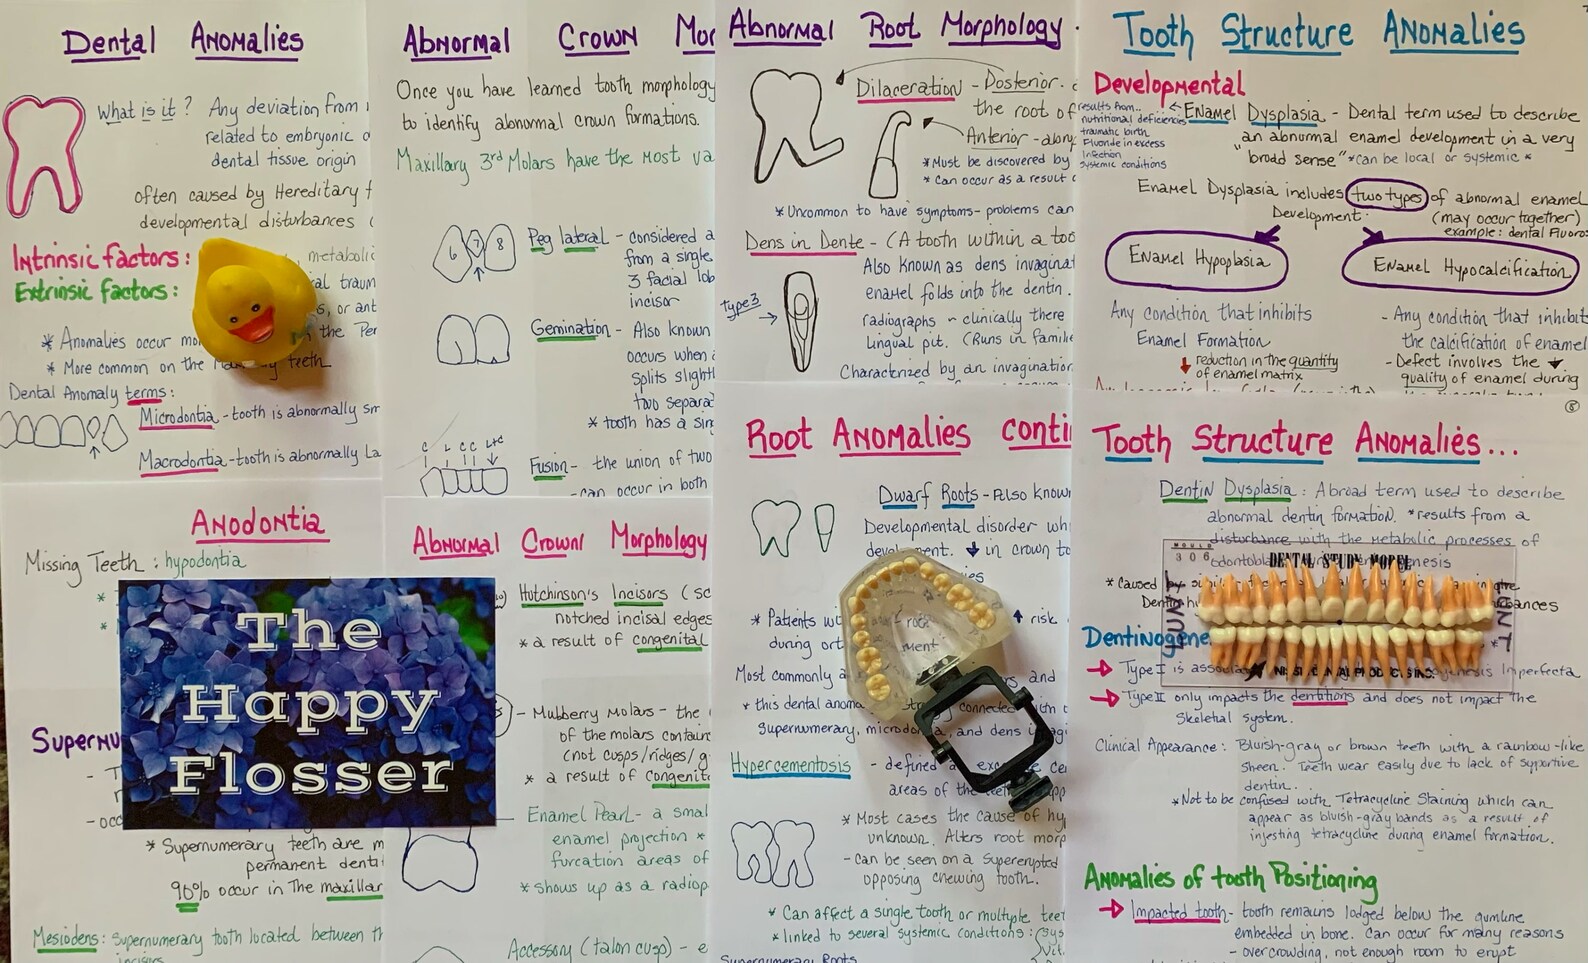 Dental Anomalies
What is it? Any deviation from
related to embryonic
dental tissue origin
often caused by Hereditary
developmental disturbances
Intrinsic factors: metabolic
Extrinsic factors:
s, or ant
* Anomalies occur mo the Per
* More common on the teeth
Dental Anomaly terms:
Microdontia - tooth is abnormally sm
Macrodontia - tooth is abnormally La
Anodontia
Missing Teeth : hypodontia
*
*
The
Happy
Flosser
Supernu
- T
- occ
* Supernumerary teeth are m
permanent denti
90% occur in The maxillar
Mesiodens: Supernumerary tooth located between th
incisors
Abnormal Crown Mor
Once you have learned tooth morphology
to identify abnormal crown formations.
Maxillary 3rd Molars have the most va
6 7 8
Peg lateral - considered a
from a single
3 facial lob
incisor
Gemination - Also known
occurs when a
splits slightl
two separa
* tooth has a sing
C L C C L+C
Fusion - the union of two
- can occur in both
Abnormal Crown Morphology
Hutchinson's Incisors (sc
notched incisal edges
* a result of congenital
- Mulberry Molars - the
of the molars contain
(not cusps/ridges/g
* a result of congenita
Enamel Pearl - a small
enamel projection *
furcation areas of
* shows up as a radiop
Accessory (talon cusp) - e
Abnormal Root Morphology
Dilaceration - Posterior -
the root of
Anterior - along
* Must be discovered by
* Can occur as a result
* Uncommon to have symptoms - problems can
Dens in Dente - (A tooth within a too
Also known as dens invaginat
enamel folds into the dentin.
type 3
radiographs ~ clinically there
Lingual pit. (Runs in familie
Characterized by an invagination
Root Anomalies conti
Dwarf Roots - Also know
Developmental disorder wh
development. ↓ in crown to
ies
* Patients wi ↑ risk
during ort
Most commonly a rs and
* this dental anoma strongly connected with
Supernumerary, microdontia, and dens invagi
Hypercementosis - defined a exce ce
areas of the
* Most cases the cause of hy
unknown. Alters root morp
- Can be seen on a supererupted
opposing chewing tooth.
* Can affect a single tooth or multiple teet
* linked to several systemic conditions: (sys
Vit.
Supernumerary Roots
Tooth Structure Anomalies
Developmental
results from..
nutritional deficiencies
traumatic birth
Fluoride in excess
Infection
Systemic conditions
← Enamel Dysplasia - Dental term used to describe
an abnormal enamel development in a very
"broad sense" * can be local or systemic *
Enamel Dysplasia includes two types of abnormal enamel
Development. (may occur together)
example: dental fluoro
Enamel Hypoplasia
Enamel Hypocalcification
Any condition that inhibits
Enamel Formation
↓ reduction in the quantity
of enamel matrix
- Any condition that inhibits
the calcification of enamel
- Defect involves the ↓
quality of enamel during
8
Tooth Structure Anomalies...
Dentin Dysplasia : A broad term used to describe
abnormal dentin formation. * results from a
disturbance with the metabolic processes of
odontobl nesis
* Caused by
MOULD
306
DENTAL STUDY MODEL
Dentinogene
→ Type I is assoc genesis Imperfecta
→ Type II only impacts the dentitions and does not impact the
skeletal system.
Clinical Appearance : Bluish-gray or brown teeth with a rainbow-like
sheen. Teeth wear easily due to lack of supportive
dentin.
* Not to be confused with Tetracycline Staining which can
appear as bluish-gray bands as a result of
injesting tetracycline during enamel formation.
Anomalies of tooth Positioning
→ Impacted tooth - tooth remains lodged below the gumline
embedded in bone. Can occur for many reasons
- overcrowding, not enough room to erupt